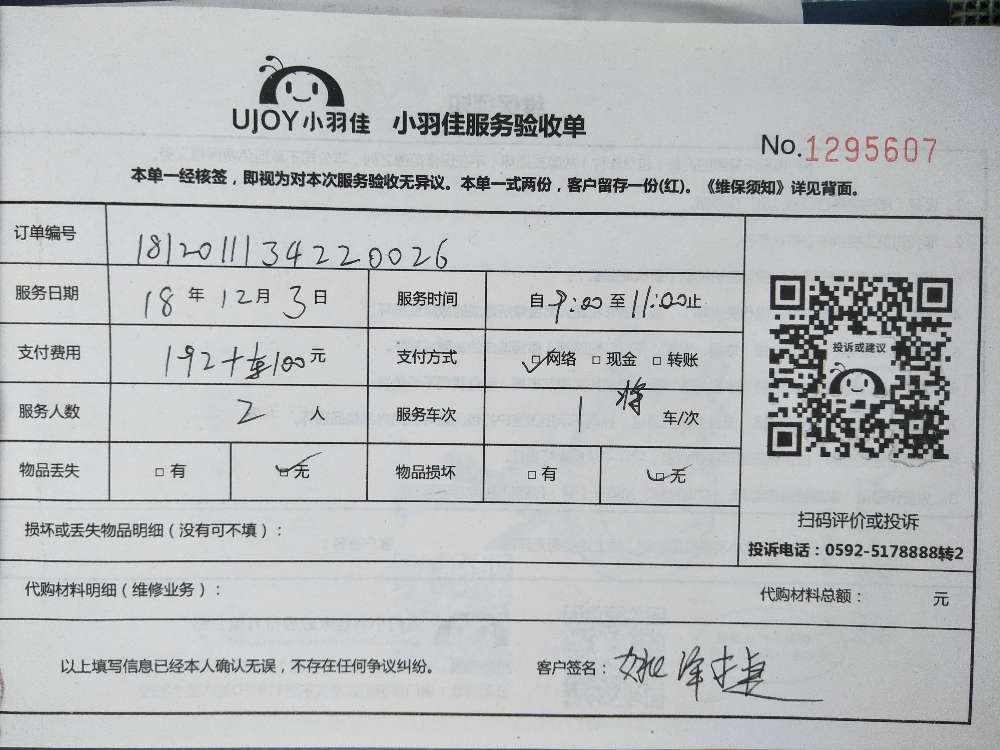 UJOY小羽佳 小羽佳服务验收单
No.1295607
本单一经核签，即视为对本次服务验收无异议。本单一式两份，客户留存一份(红)。《维保须知》详见背面。
订单编号 1812011134220026
服务日期 18 年 12 月 3 日 服务时间 自 9:00 至 11:00 止
支付费用 192+车100 元 支付方式 ✓□网络 □现金 □转账
服务人数 2 人 服务车次 1 车/次
物品丢失 □有 ☑无 物品损坏 □有 ☑无
投诉或建议
扫码评价或投诉
投诉电话：0592-5178888转2
损坏或丢失物品明细（没有可不填）：
代购材料明细（维修业务）： 代购材料总额： 元
以上填写信息已经本人确认无误，不存在任何争议纠纷。 客户签名：